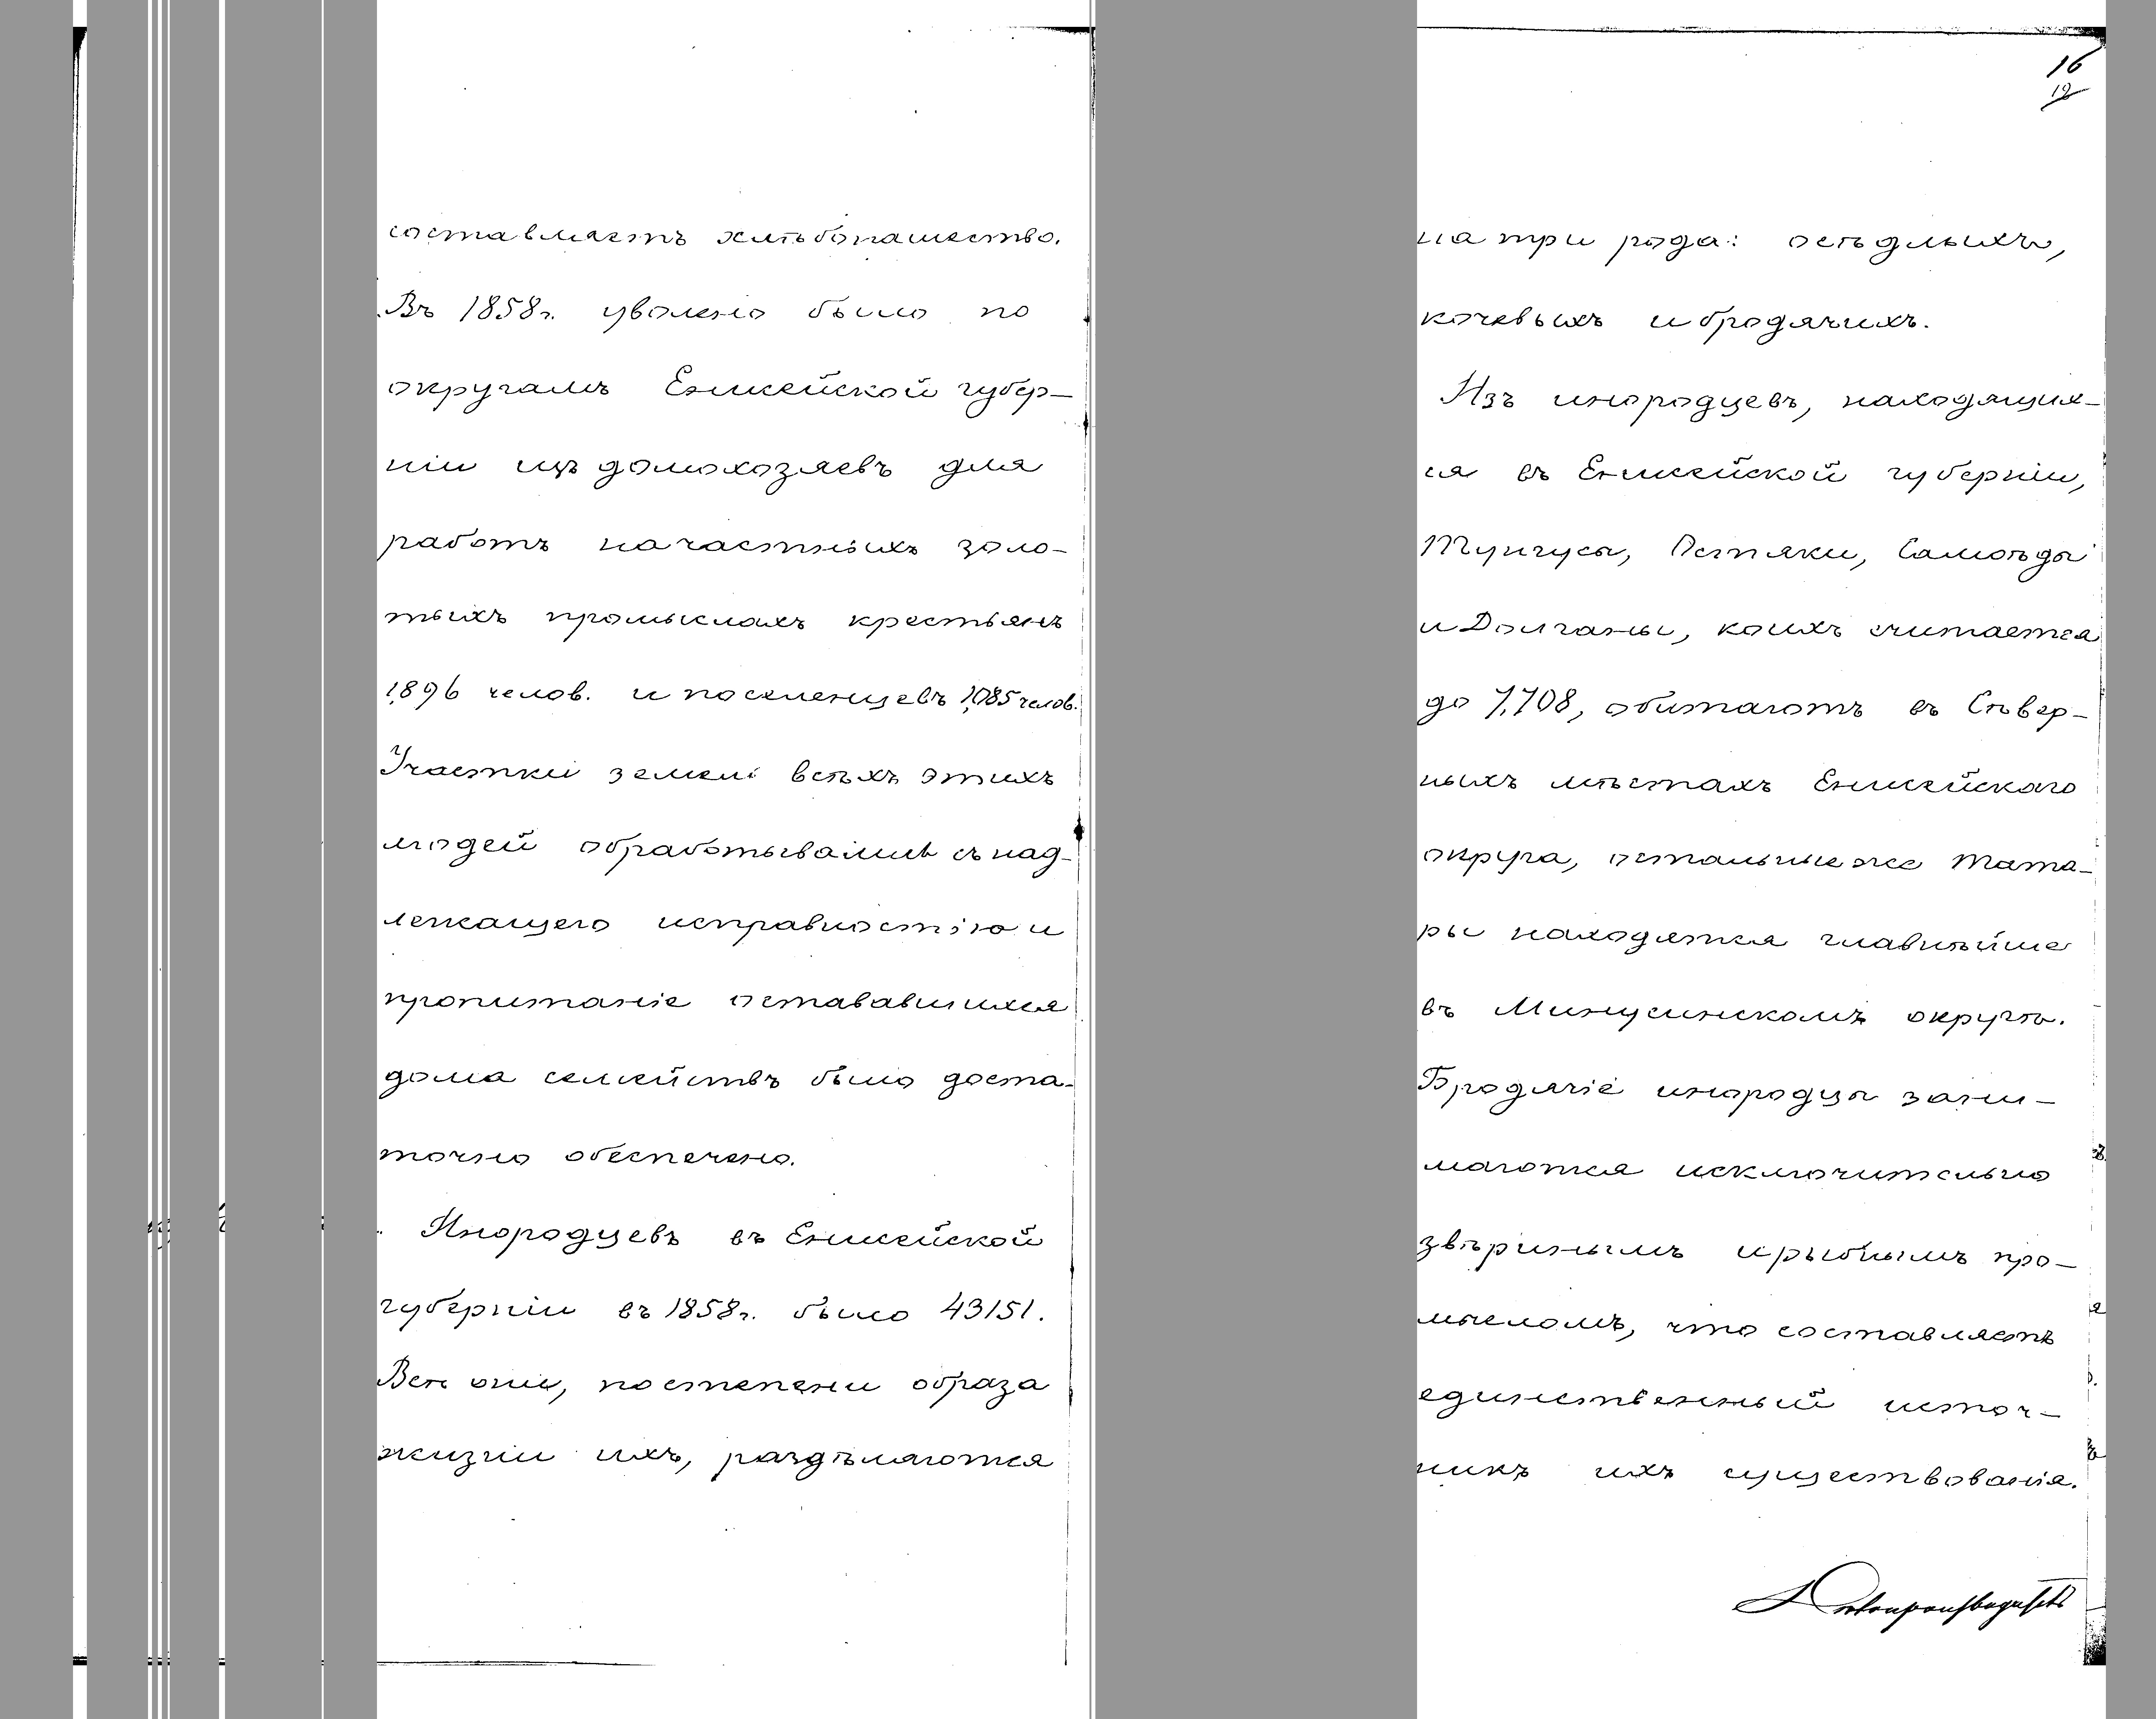 составляетъ хлѣбопашество.
Въ 1858г. уволено было по
округамъ Енисейской губер-
ніи изъ домохозяевъ для
работъ на частныхъ золо-
тыхъ промыслахъ крестьянъ
1,896 челов. и поселенцевъ 1,085 челов.
Участки земли всѣхъ этихъ
людей обработывались съ над-
лежащего исправностію и
пропитаніе остававшихся
дома семействъ было доста-
точно обеспечено.
Инородцевъ въ Енисейской
губерніи въ 1858г. было 43151.
Всѣ они, по степени образа
жизни ихъ, раздѣляются
16
12
на три рода: осѣдлыхъ,
кочевыхъ и бродячихъ.
Изъ инородцевъ, находящих-
ся въ Енисейской губерніи,
Тунгусы, Остяки, Самоѣды
и Долганы, коихъ считается
до 7,708, обитаютъ въ Сѣвер-
ныхъ мѣстахъ Енисейскаго
округа, остальные же Тата-
ры находятся главнѣйше
въ Минусинскомъ округѣ.
Бродячіе инородцы зани-
маются исключительно
звѣринымъ и рыбнымъ про-
мысломъ, что составляетъ
единственный источ-
никъ ихъ существованія.